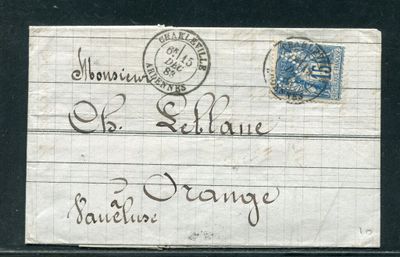 CHARLEVILLE
6E 15
DEC
83
ARDENNES
15
Monsieur
Ch. Leblanc
à
Orange
Vaucluse